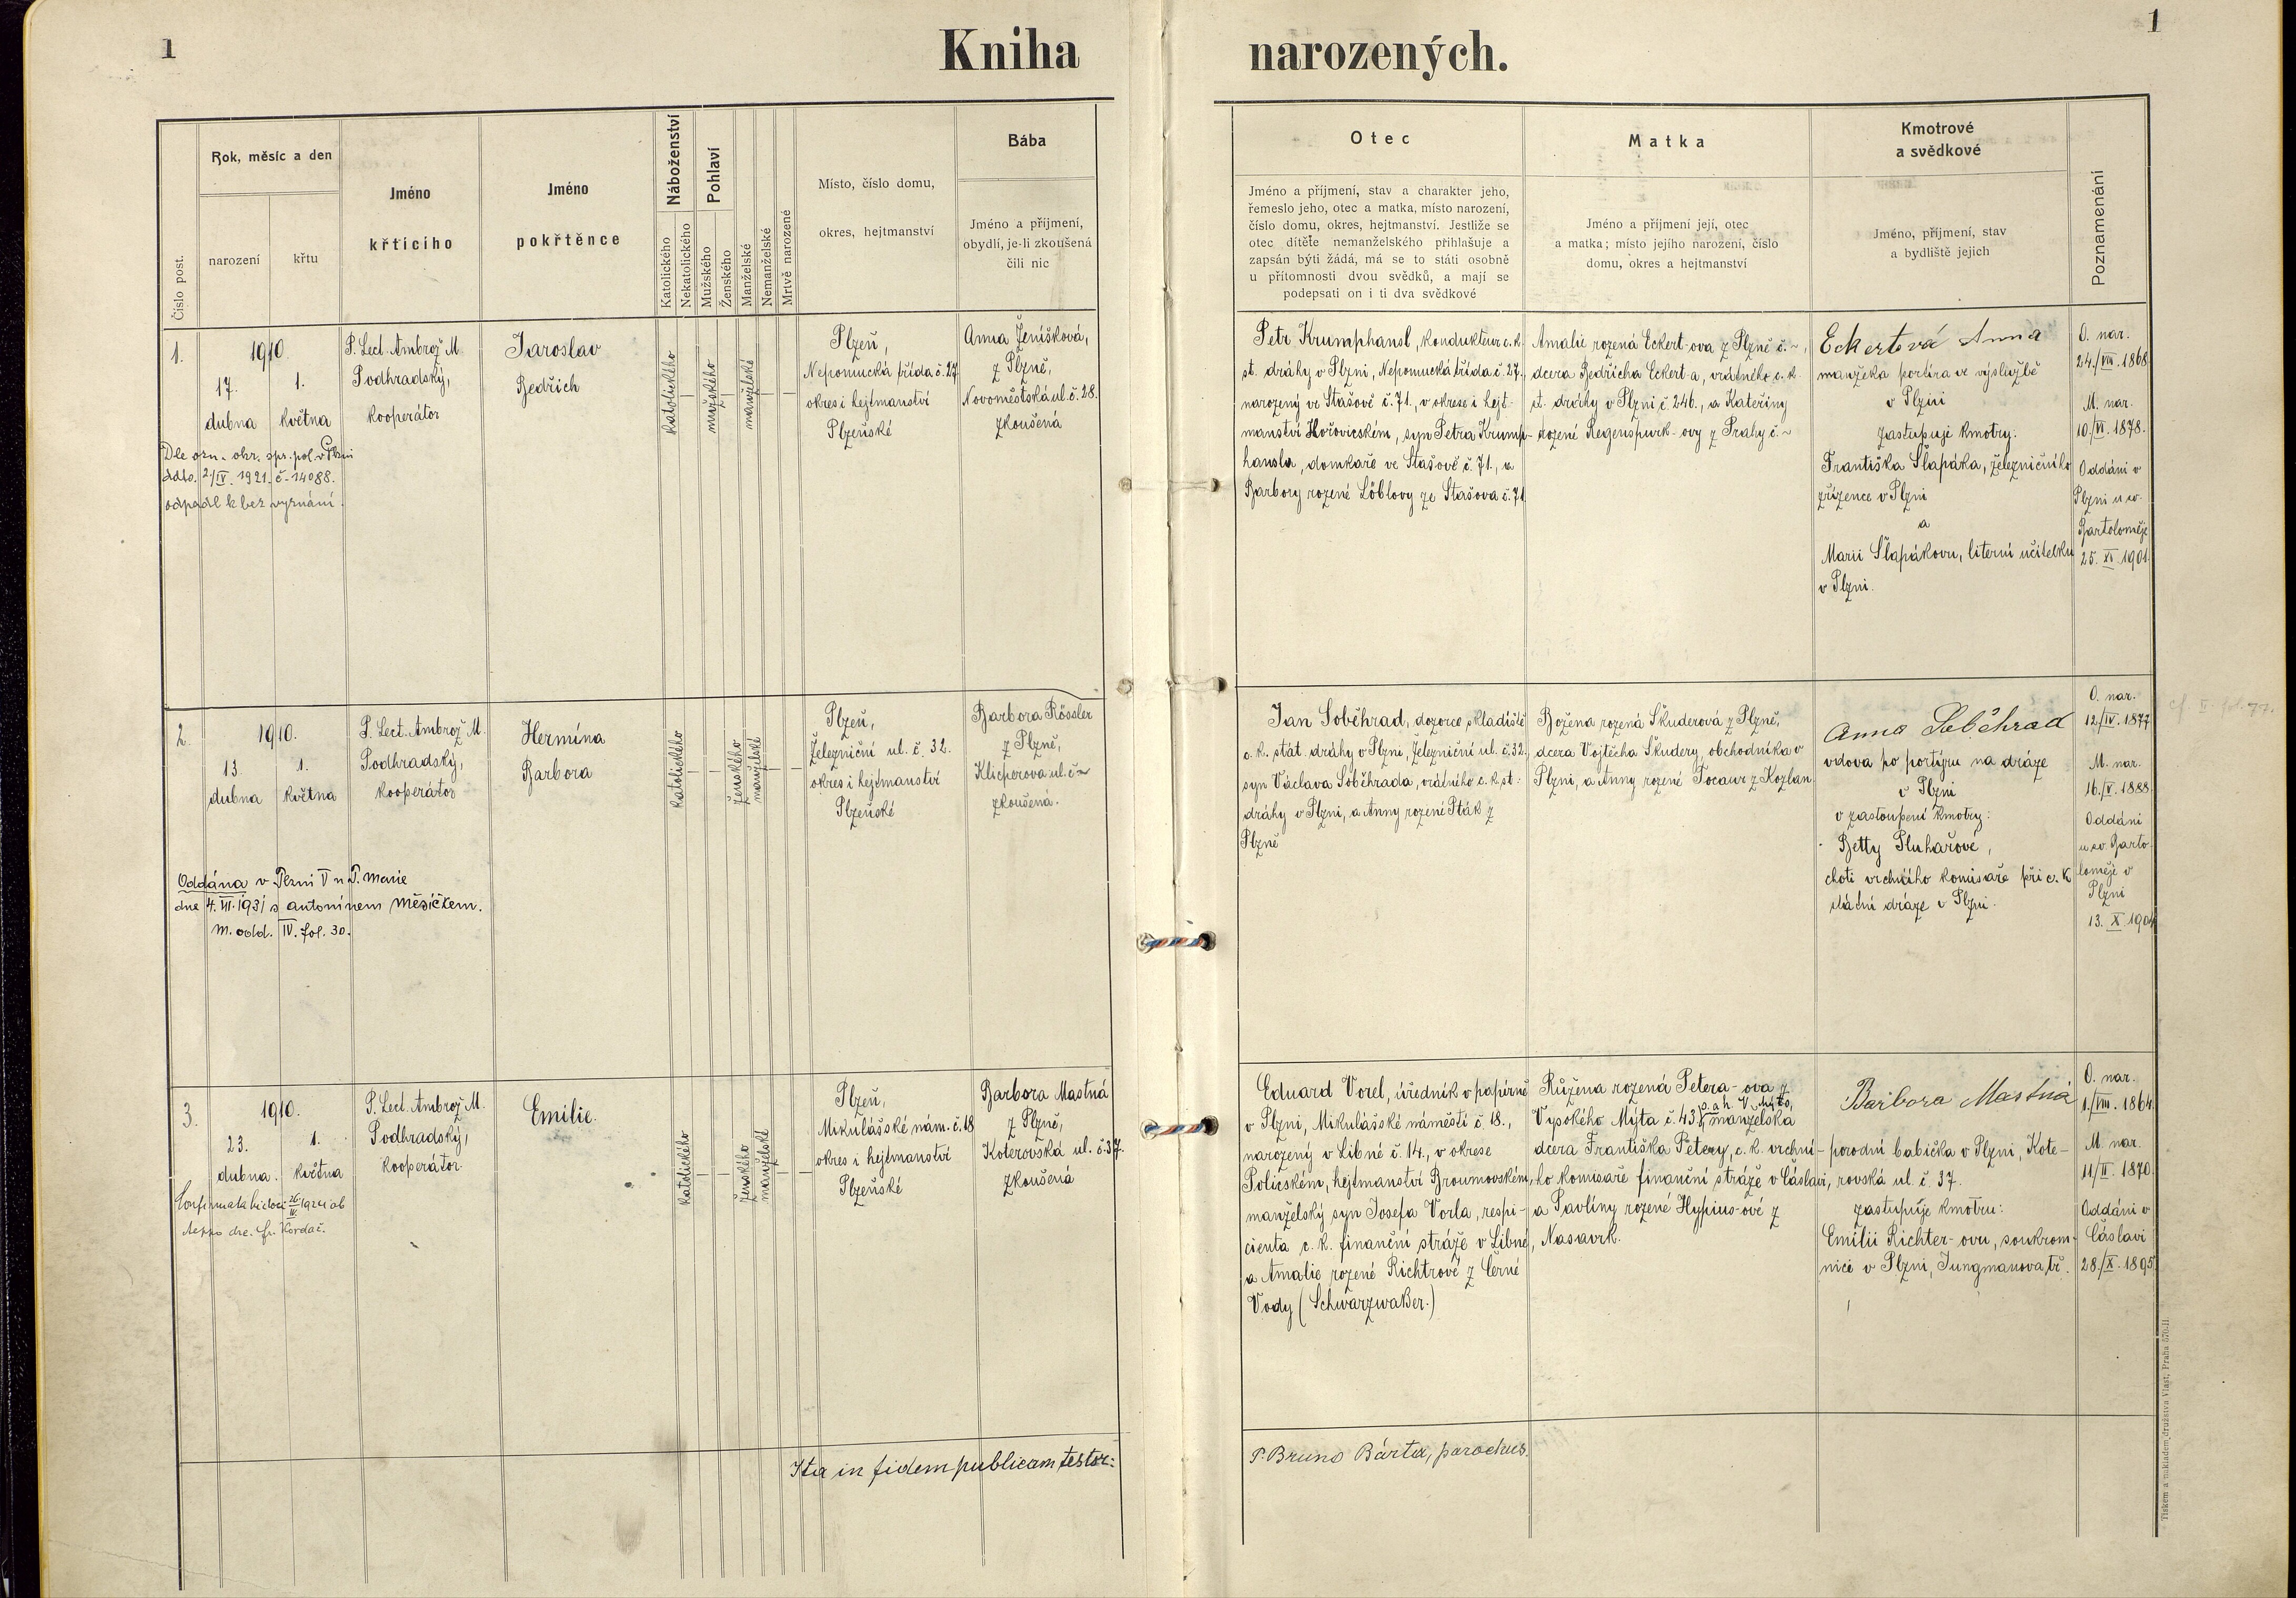 1
Kniha narozených.
1
Číslo post.
Rok, měsíc a den
narození
křtu
Jméno
křtícího
Jméno
pokřtěnce
Náboženství
Katolického
Nekatolického
Pohlaví
Mužského
Ženského
Manželské
Nemanželské
Mrtvě narozené
Místo, číslo domu,
okres, hejtmanství
Bába
Jméno a příjmení,
obydlí, je-li zkoušená
čili nic
Otec
Jméno a příjmení, stav a charakter jeho,
řemeslo jeho, otec a matka, místo narození,
číslo domu, okres, hejtmanství. Jestliže se
otec dítěte nemanželského přihlašuje a
zapsán býti žádá, má se to státi osobně
u přítomnosti dvou svědků, a mají se
podepsati on i ti dva svědkové
Matka
Jméno a příjmení její, otec
a matka; místo jejího narození, číslo
domu, okres a hejtmanství
Kmotrové
a svědkové
Jméno, příjmení, stav
a bydliště jejich
Poznamenání
1.
1910.
17. 1.
dubna května
Dle ozn. okr. spr. pol. v Plzni
ddto. 2/IV. 1921. č. 14088.
odpadl k bez vyznání.
P. Lect. Ambrož M.
Podhradský,
kooperátor
Jaroslav
Bedřich
katolického
mužského
manželské
Plzeň,
Nepomucká třída č. 27
okres i hejtmanství
Plzeňské
Anna Ženíšková,
z Plzně,
Novoměstská ul. č. 28.
zkoušená
Petr Krumphansl, kondukteur c. k.
st. dráhy v Plzni, Nepomucká třída č. 27.,
narozený ve Stašově č. 71., v okrese i hejt-
manství Hořovickém, syn Petra Krump-
hansla, domkaře ve Stašově č. 71., a
Barbory rozené Löblovy ze Stašova č. 71
Amalie rozená Eckert-ova z Plzně č. ~,
dcera Bedřicha Eckert-a, vrátného c. k.
st. dráhy v Plzni č. 246., a Kateřiny
rozené Regenspurk-ovy z Prahy č. ~
Eckertová Anna
manželka portíra ve výslužbě
v Plzni
zastupuje kmotry:
Františka Šlapáka, železničního
zřízence v Plzni
a
Marii Šlapákovu, literní učitelku
v Plzni.
O. nar.
24./VII. 1868.
M. nar.
10./VI. 1878.
Oddáni v
Plzni u sv.
Bartoloměje
25. XI. 1901.
2.
1910.
13 1.
dubna května
Oddána v Plzni V n P. Marie
dne 4. VII. 1931 s antonínem Měsíčkem.
M. odd. IV. fol. 30.
P. Lect. Ambrož M.
Podhradský,
kooperátor
Hermína
Barbora
katolického
ženského
manželské
Plzeň,
Železniční ul. č. 32.
okres i hejtmanství
Plzeňské
Barbora Rössler
z Plzně,
Klicperova ul. č ~
zkoušená.
Jan Soběhrad, dozorce skladiště
c. k. stát. dráhy v Plzni, Železniční ul. č. 32.,
syn Václava Soběhrada, vrátného c. k. st:
dráhy v Plzni, a Anny rozené Pták z
Plzně
Božena rozená Škuderová z Plzně,
dcera Vojtěcha Škudery, obchodníka v
Plzni, a Anny rozené Tocaur z Kozlan
Anna Soběhrad
vdova po portýru na dráze
v Plzni
v zastoupení kmotry:
Betty Pluhařové,
choti vrchního komisaře při c. k
státní dráze v Plzni.
O. nar.
12./IV. 1877
M. nar.
16./V. 1888.
Oddáni
u sv. Barto-
loměje v
Plzni
13. X. 190
cf. II. fol. 77.
3.
1910.
23. 1.
dubna. května
P. Lect. Ambrož M.
Podhradský,
kooperátor.
Emilie.
katolického
ženského
manželské
Plzeň,
Mikulášské nám. č. 18
okres i hejtmanství
Plzeňské
Barbora Mastná
z Plzně,
Koterovská ul. č. 37.
zkoušená
Eduard Vorel, úředník v papírně
v Plzni, Mikulášské náměstí č. 18.,
narozený v Libné č. 14., v okrese
Polickém, hejtmanství Broumovském,
manželský syn Josefa Vorla, respi-
cienta c. k. finanční stráže v Libné,
a Amalie rozené Richtrové z Černé
Vody (Schwarzwaßer.)
Růžena rozená Petera-ova z
Vysokého Mýta č. 43, manželská
dcera Františka Petery, c. k. vrchní-
ho komisaře finanční stráže v Čáslavi,
a Pavlíny rozené Hypius-ové z
Nasavrk.
Barbora Mastná
porodní babička v Plzni, Kote-
rovská ul. č. 37.
zastupuje kmotru:
Emilii Richter-ovu, soukrom-
nici v Plzni, Jungmanova tř.
O. nar.
1./VIII. 1864.
M. nar.
11/II. 1870.
Oddáni v
Čáslavi
28./X. 1895.
Ita in fidem publicam testor:
P. Bruno Bárta, parochus.
Tiskem a nákladem družstva Vlast, Praha 570-II.